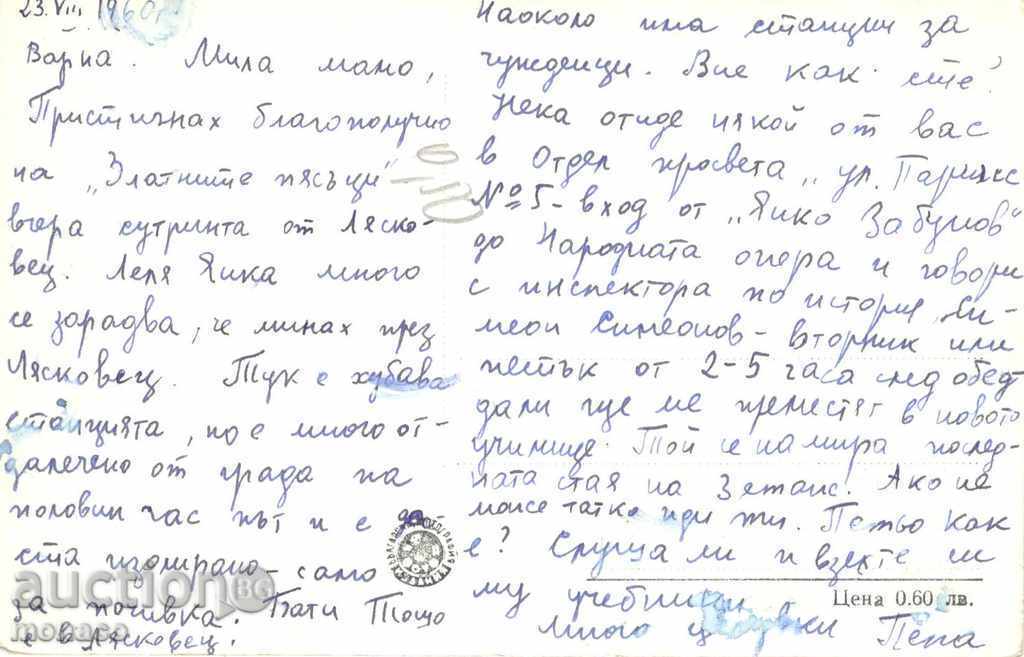 23.VIII 1960г.
Варна. Мила мамо,
Пристигнах благополучно
на „Златните пясъци"
вчера сутринта от Ляско-
вец. Леля Янка много
се зарадва, че минах през
Лясковец. Тук е хубава
станцията, но е много от-
далечено от града на
половин час път и е до
ста изолирано – само
за почивка. Бати Тошо
е в Лясковец.
Наоколо има станции за
чужденци. Вие как сте?
Нека отиде някой от вас
в Отдел просвета „ул. Париж
№ 5 – вход от „Янко Забунов"
до Народната опера и говори
с инспектора по история, Си-
меон Симеонов – вторник или
петък от 2–5 часа след обед
дали ще ме преместят в новото
училище. Той се намира послед-
ната стая на 3 етаж. Ако не
може татко иди ти. Петьо как
е? Слуша ли и взехте ли
му учебници.
Много целувки Пепа
Цена 0.60 лв.
auction.bg
monaco